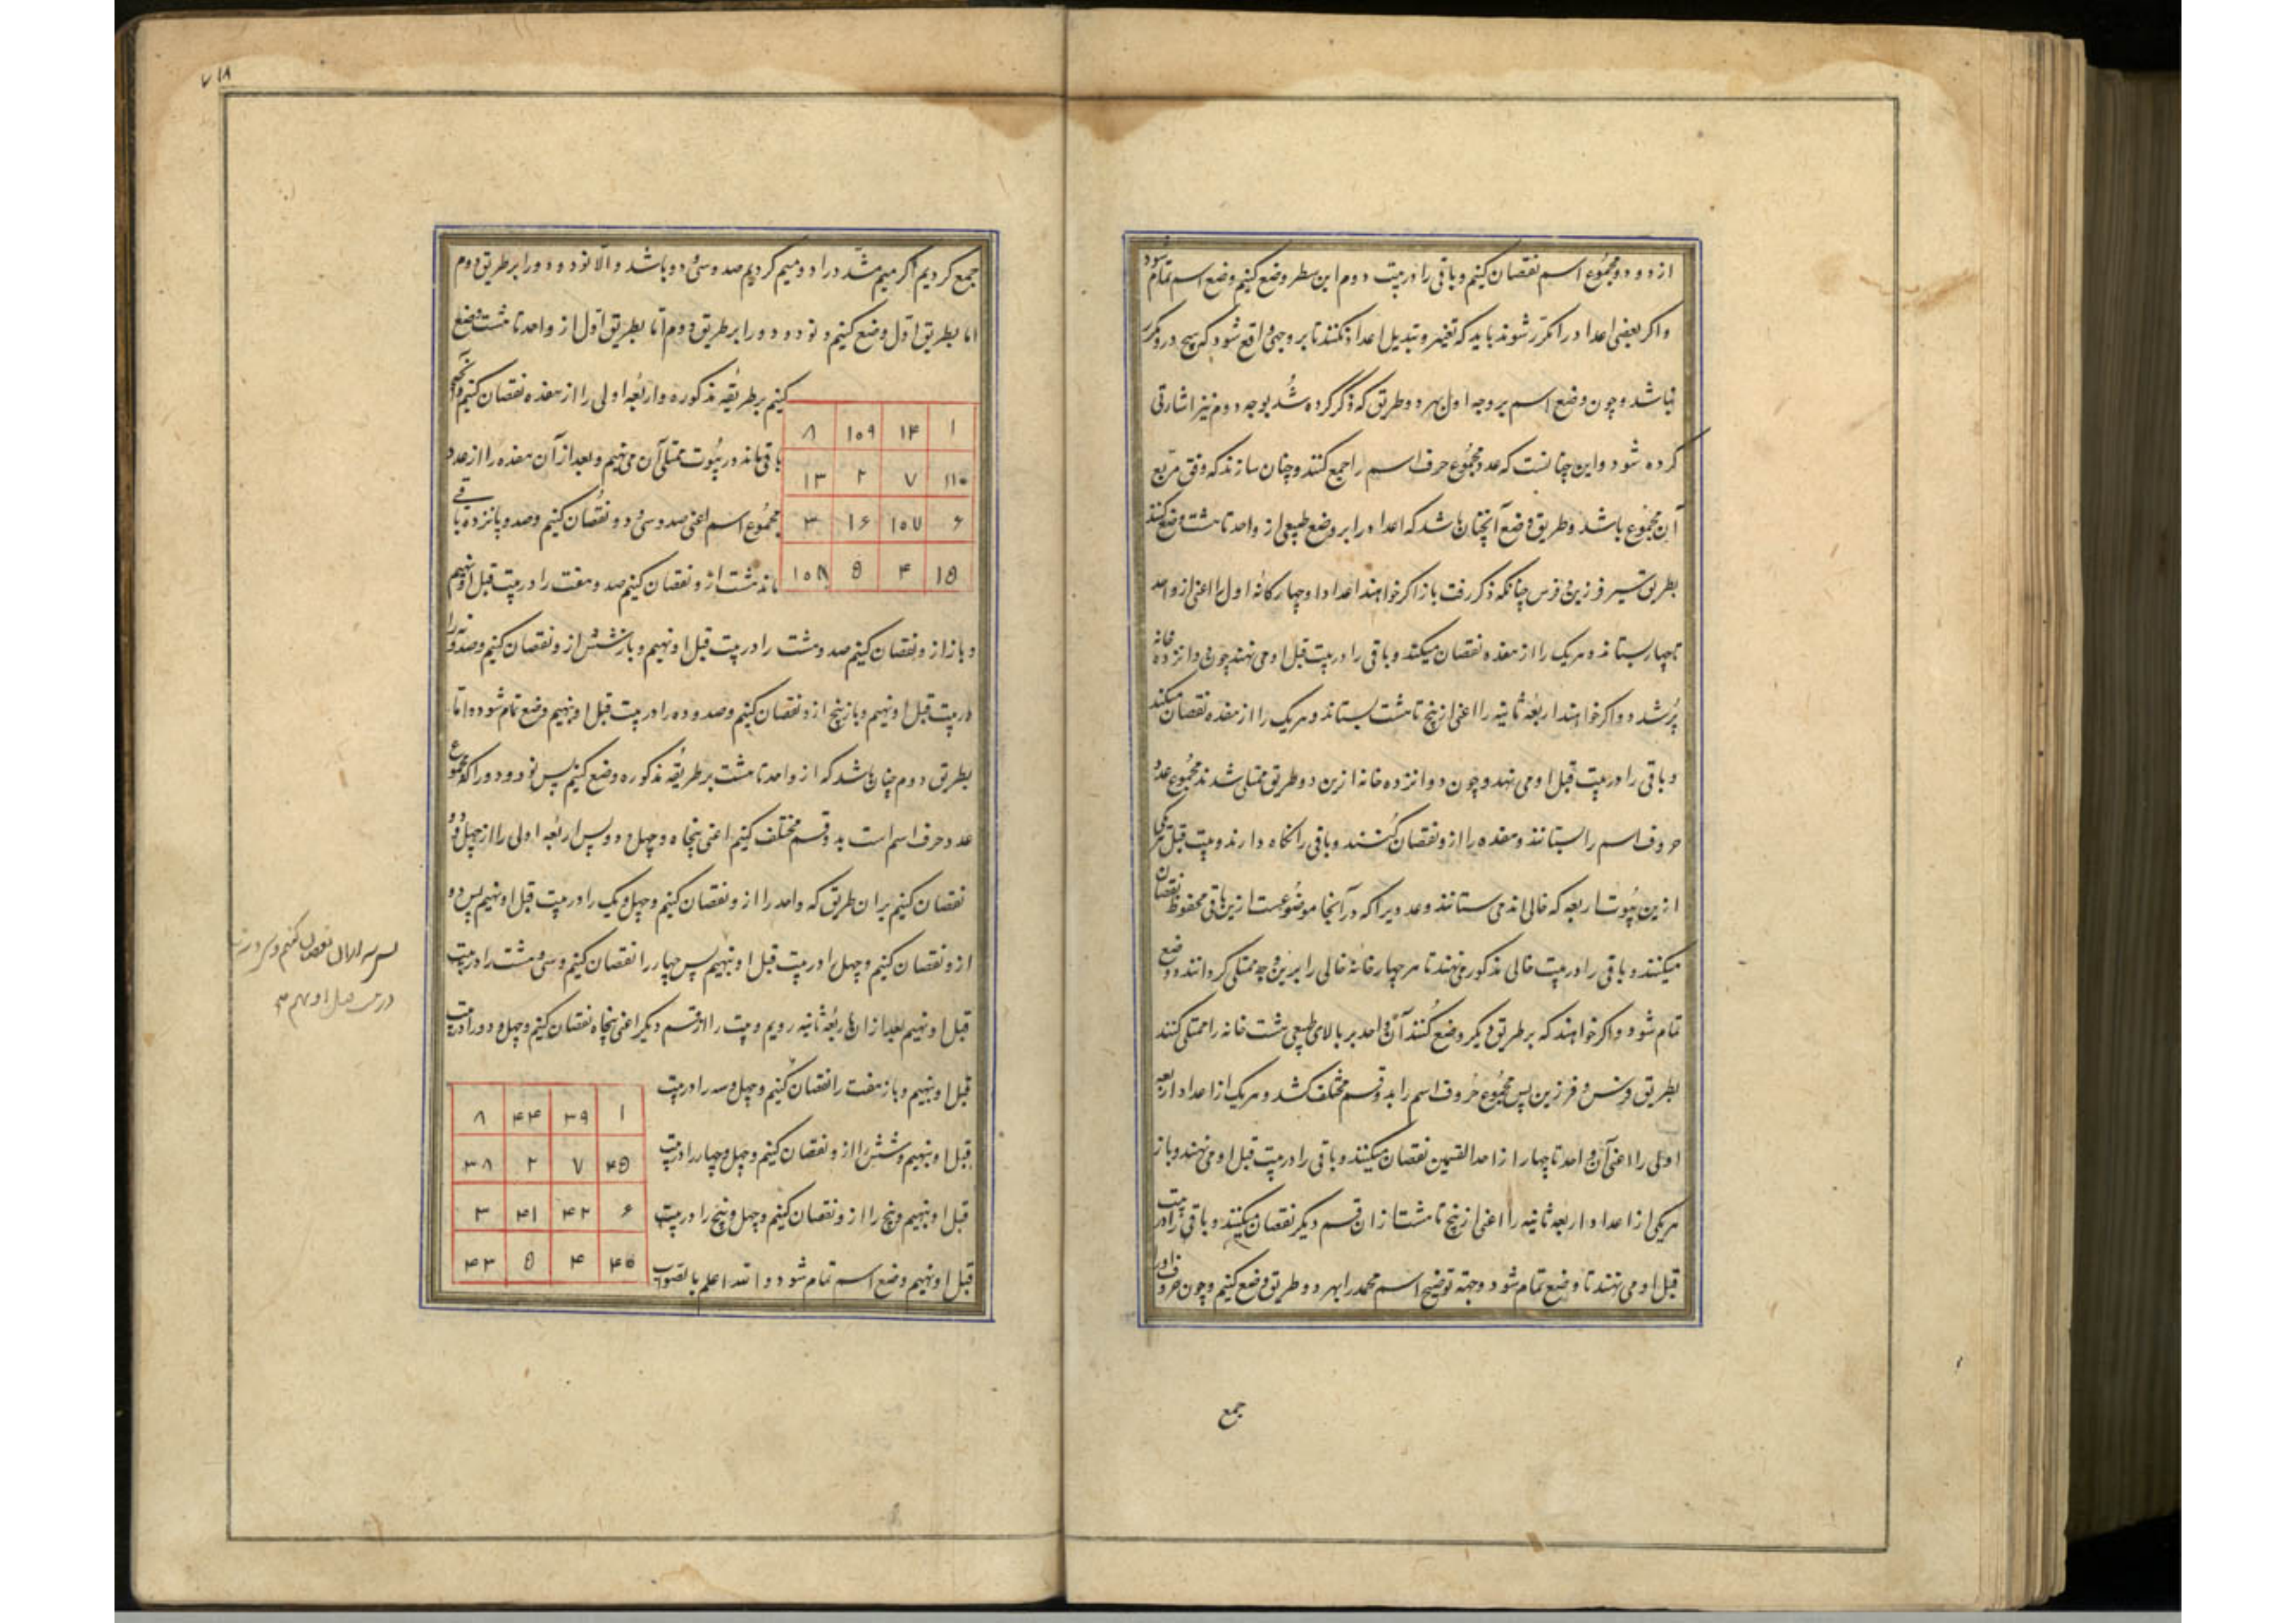 از دو و دو مجموع اسم نقصان کنیم و باقی را در بیت دوم این سطر وضع کنیم وضع اسم تمام شود
و اکر بعضی اعداد را مکرر شوند باید که تغییر و تبدیل اعداد کنند تا بر وجهی واقع شود که هیچ درو مکرر
نباشد و چون وضع اسم بر وجه اول بهر دو طریق که ذکر کرده شد بوجه دوم نیز اشارتی
کرده شود و این چنانست که عدد مجموع حرف اسم را جمع کنند و چنان سازند که وفق مربع
آن مجموع باشد و طریق وضع آنچنان باشد که اعداد را بر وضع طبیعی از واحد تا هشت وضع کنند
بطریق سیر فرزین و فرس چنانکه ذکر رفت باز اکر خواهند اعداد او چهار کانه اول را اعنی از واحد
تا چهار بستانند و هریک را از هفده نقصان میکنند و باقی را در بیت قبل او می نهند چون دوانزده خانه
پر شد و اکر خواهند اربعه ثانیه را اعنی از پنج تا هشت بستانند و هریک را از هفده نقصان میکنند
و باقی را در بیت قبل او می نهند و چون دوانزده خانه ازین دو طریق ممتلی شدند مجموع عدد
حروف اسم را بستانند و هفده را ازو نقصان کنند و باقی را نکاه دارند و بیت قبل هر یکی
ازین بیوت اربعه که خالی اند می ستانند و عددیرا که در آنجا موضوعست ازین باقی محفوظ نقصان
میکنند و باقی را در بیت خالی مذکور می نهند تا هر چهار خانهٔ خالی را برین وجه ممتلی کردانند و وضع
تمام شود و اکر خواهند که بر طریق دیکر وضع کنند آن واحد بر بالای طبیعی هشت خانه را ممتلی کنند
بطریق فرس و فرزین پس مجموع حروف اسم را بدو قسم مختلف کشد و هریک از اعداد اربعه
اولی را اعنی آن واحد تا چهار از احد القسمین نقصان میکنند و باقی را در بیت قبل او می نهند و باز
هریکی از اعداد اربعه ثانیه را اعنی از پنج تا هشت از ان قسم دیکر نقصان میکنند و باقی را در بیت
قبل او می نهند تا وضع تمام شود و جهته توضیح اسم محمد را بهر دو طریق وضع کنیم و چون حروف او را
جمع
۷۱۸
جمع کردیم اکر میم مشدد را دو میم کردیم صد و سی و دو باشد و الا نود و دو و را بر طریق دوم
اما بطریق اول وضع کنیم و نود و دو را بر طریق دوم اما بطریق اول از واحد تا هشت وضع
کنیم بر طریقه مذکوره و اربعه اولی را از هفده نقصان کنیم و آنچه
باقی ماند در بیوت ممتلی آن می نهیم و بعد از آن هفده را از عدد
مجموع اسم اعنی صد و سی و دو نقصان کنیم و صد و پانزده باقی
ماند هشت ازو نقصان کنیم صد و هفت را در بیت قبل او نهیم
۱ ۱۴ ۱۰۹ ۸
۱۱۰ ۷ ۲ ۱۳
۶ ۱۰۷ ۱۶ ۳
۱۵ ۴ ۵ ۱۰۸
و باز از و نقصان کنیم صد و هشت را در بیت قبل او نهیم و باز شش ازو نقصان کنیم و صد و نه را
در بیت قبل او نهیم و باز پنج ازو نقصان کنیم و صد و ده را در بیت قبل او نهیم وضع تمام شود و اما
بطریق دوم چنان باشد که از واحد تا هشت بر طریقه مذکوره وضع کنیم پس نود و دو را که مجموع
عدد حرف اسم است بدو قسم مختلف کنیم اعنی پنجاه و چهل و دو پس اربعه اولی را از چهل و دو
نقصان کنیم بران طریق که واحد را ازو نقصان کنیم و چهل و یک را در بیت قبل او نهیم پس دو
ازو نقصان کنیم و چهل را در بیت قبل او نهیم پس چهار را نقصان کنیم و سی و هشت را در بیت
قبل او نهیم بعد از ان باربعهٔ ثانیه رویم و بیت را از قسم دیکر اعنی پنجاه نقصان کنیم و چهل و دو را در بیت
قبل او نهیم و باز هفت را نقصان کنیم و چهل و سه را در بیت
قبل او نهیم و شش را ازو نقصان کنیم و چهل و چهار را در بیت
قبل او نهیم و پنج را ازو نقصان کنیم و چهل و پنج را در بیت
قبل او نهیم وضع اسم تمام شود و الله اعلم بالصواب
۱ ۳۹ ۴۴ ۸
۴۵ ۷ ۲ ۳۸
۶ ۴۲ ۴۱ ۳
۴۰ ۴ ۵ ۴۳